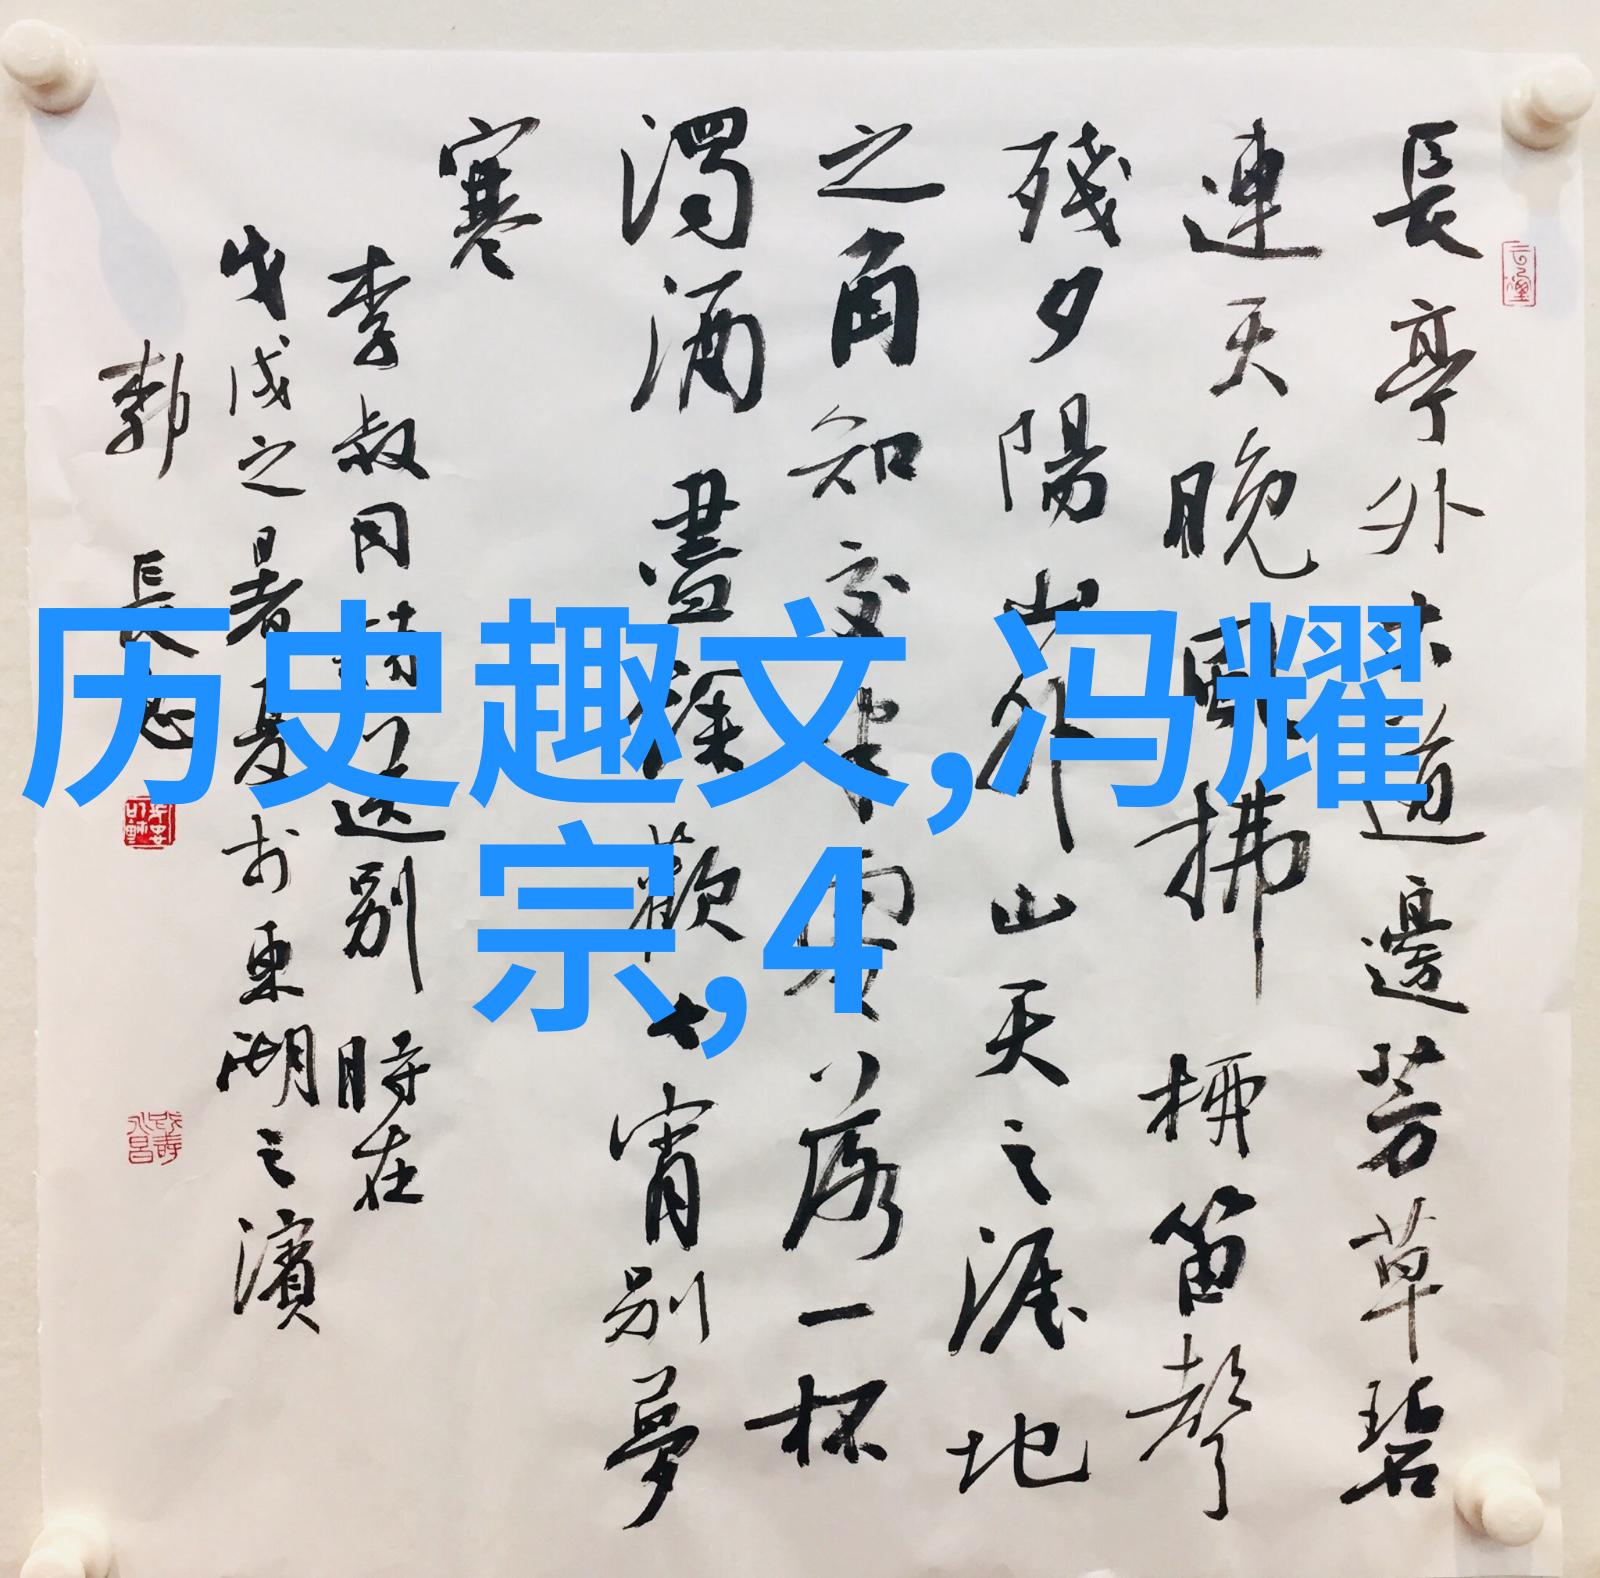 長亭外古道邊芳草碧
連天晚風拂柳笛聲
殘夕陽山外山天之涯地
之角知交半零落一杯
濁酒盡餘歡今宵別夢
寒
李叔同詩送別 時在
戊戌之暑夏於東湖之濱
郭長志
历史趣文,冯耀
宗,4